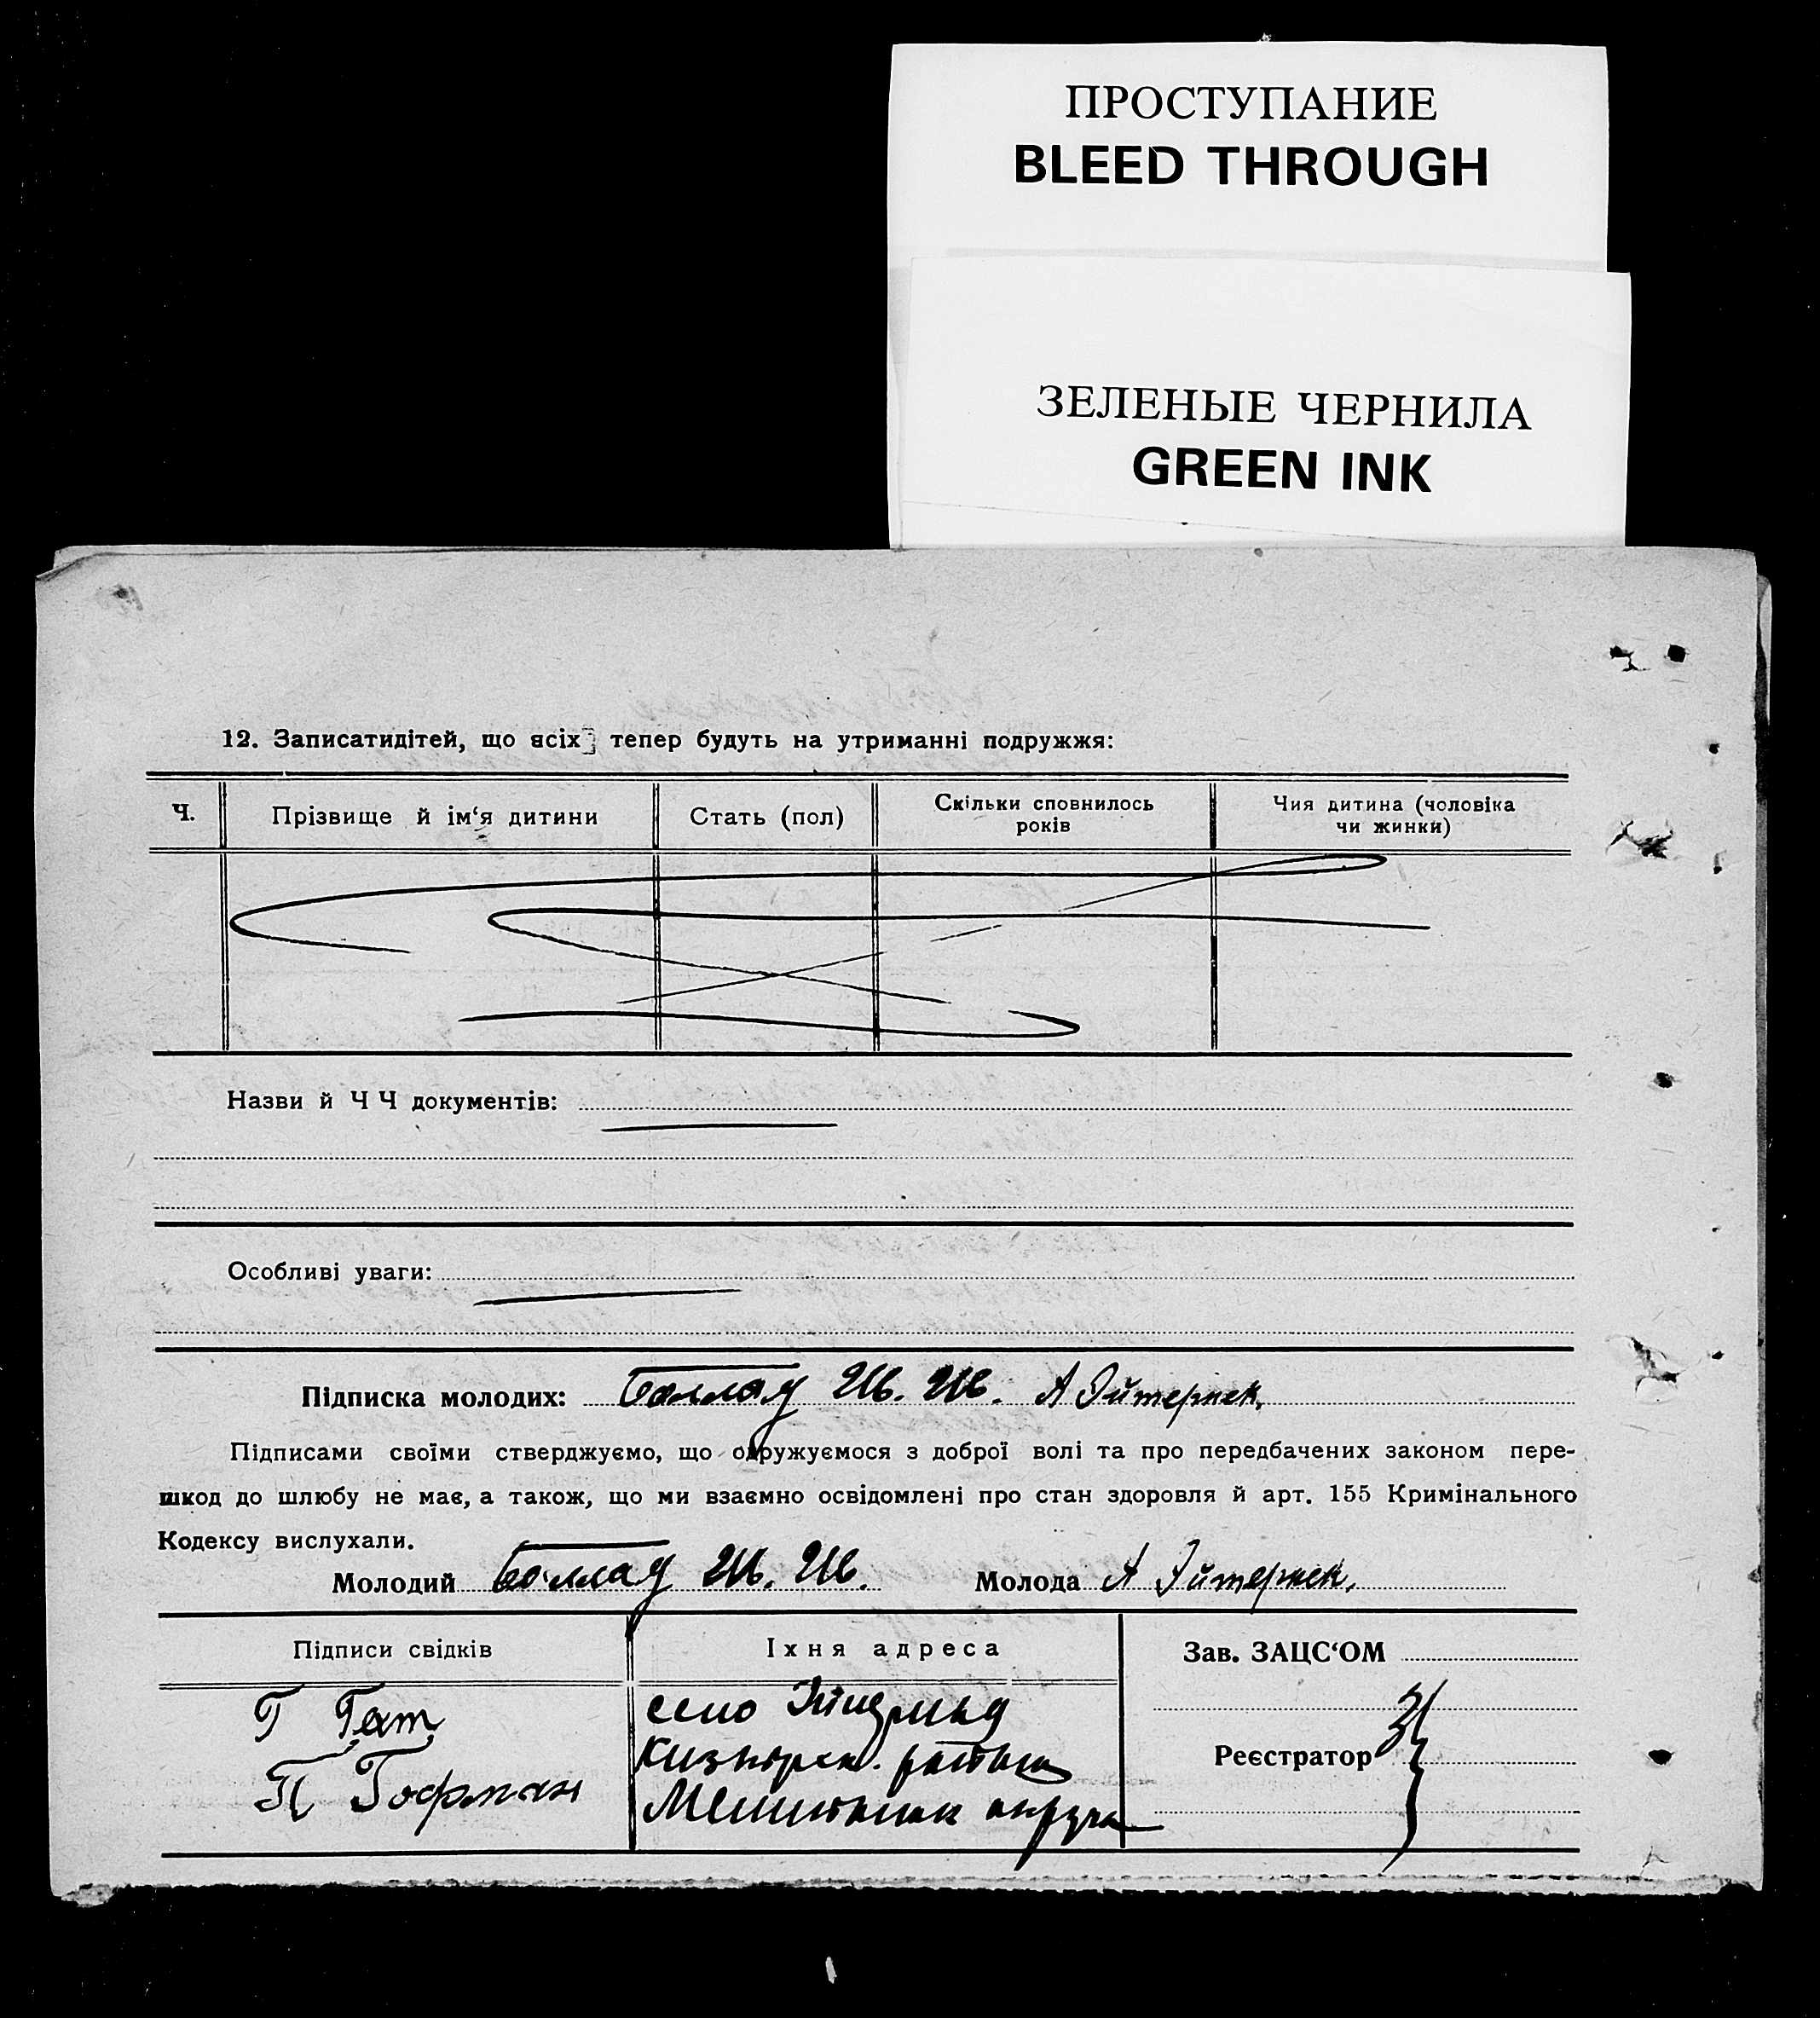 ПРОСТУПАНИЕ
BLEED THROUGH
ЗЕЛЕНЫЕ ЧЕРНИЛА
GREEN INK
12. Записатидітей, що всіх тепер будуть на утриманні подружжя:
Ч. Прізвище й ім‘я дитини Стать (пол) Скільки сповнилось років Чия дитина (чоловіка чи жинки)
Назви й Ч Ч документів:
Особливі уваги:
Підписка молодих: А Эйтернек.
Підписами своїми стверджуємо, що одружуємося з доброї волі та про передбачених законом пере-
шкод до шлюбу не має, а також, що ми взаємно освідомлені про стан здоровля й арт. 155 Кримінального
Кодексу вислухали.
Молодий Молода А Эйтернек.
Підписи свідків Їхня адреса Зав. ЗАЦС‘ОМ
Г Гат село
П Гофман
округа
Реєстратор